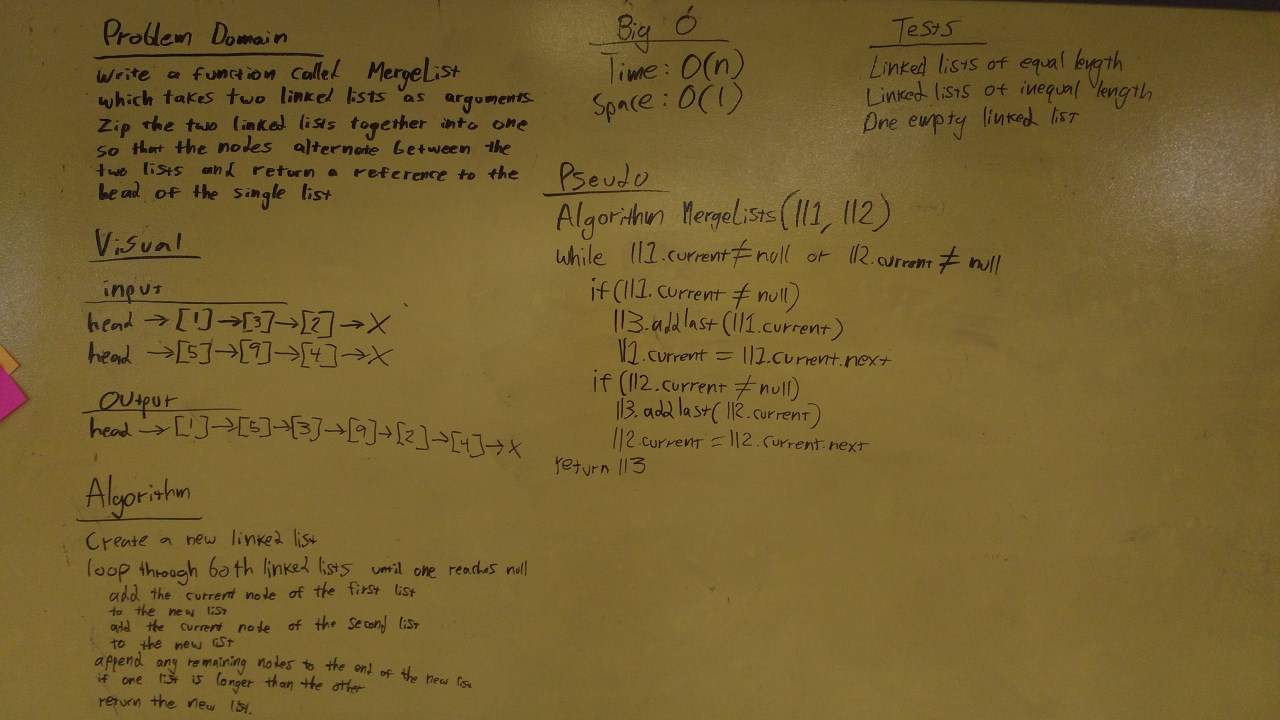 Problem Domain
Write a function called MergeList
which takes two linked lists as arguments.
Zip the two linked lists together into one
so that the nodes alternate between the
two lists and return a reference to the
head of the single list
Visual
input
head → [1] → [3] → [2] → X
head → [5] → [9] → [4] → X
Output
head → [1] → [5] → [3] → [9] → [2] → [4] → X
Algorithm
Create a new linked list
loop through both linked lists until one reaches null
add the current node of the first list
to the new list
add the current node of the second list
to the new list
append any remaining nodes to the end of the new list
if one list is longer than the other
return the new list.
Big O
Time: O(n)
Space: O(1)
Tests
Linked lists of equal length
Linked lists of inequal length
One empty linked list
Pseudo
Algorithm MergeLists(ll1, ll2)
while ll1.current ≠ null or ll2.current ≠ null
if (ll1.current ≠ null)
ll3.addlast(ll1.current)
ll1.current = ll1.current.next
if (ll2.current ≠ null)
ll3.addlast(ll2.current)
ll2.current = ll2.current.next
return ll3